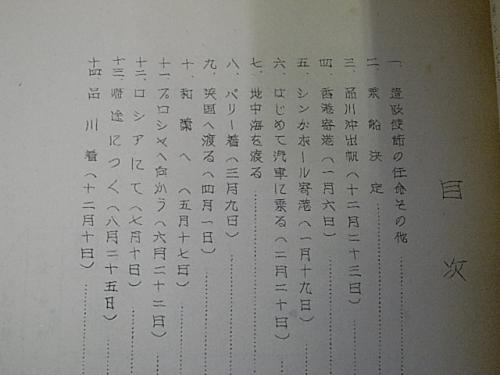 目次
一、遣欧使節の任命その他
二、乗船決定
三、品川沖出帆(十二月二十三日)
四、香港寄港(一月六日)
五、シンガポール寄港(一月十九日)
六、はじめて汽車に乗る(二月二十日)
七、地中海を渡る
八、パリー着(三月九日)
九、英国へ渡る(四月一日)
十、和蘭へ(五月十七日)
十一、プロシャへ向かう(六月二十二日)
十二、ロシアにて(七月十日)
十三、帰途につく(八月二十五日)
十四、品川着(十二月十日)